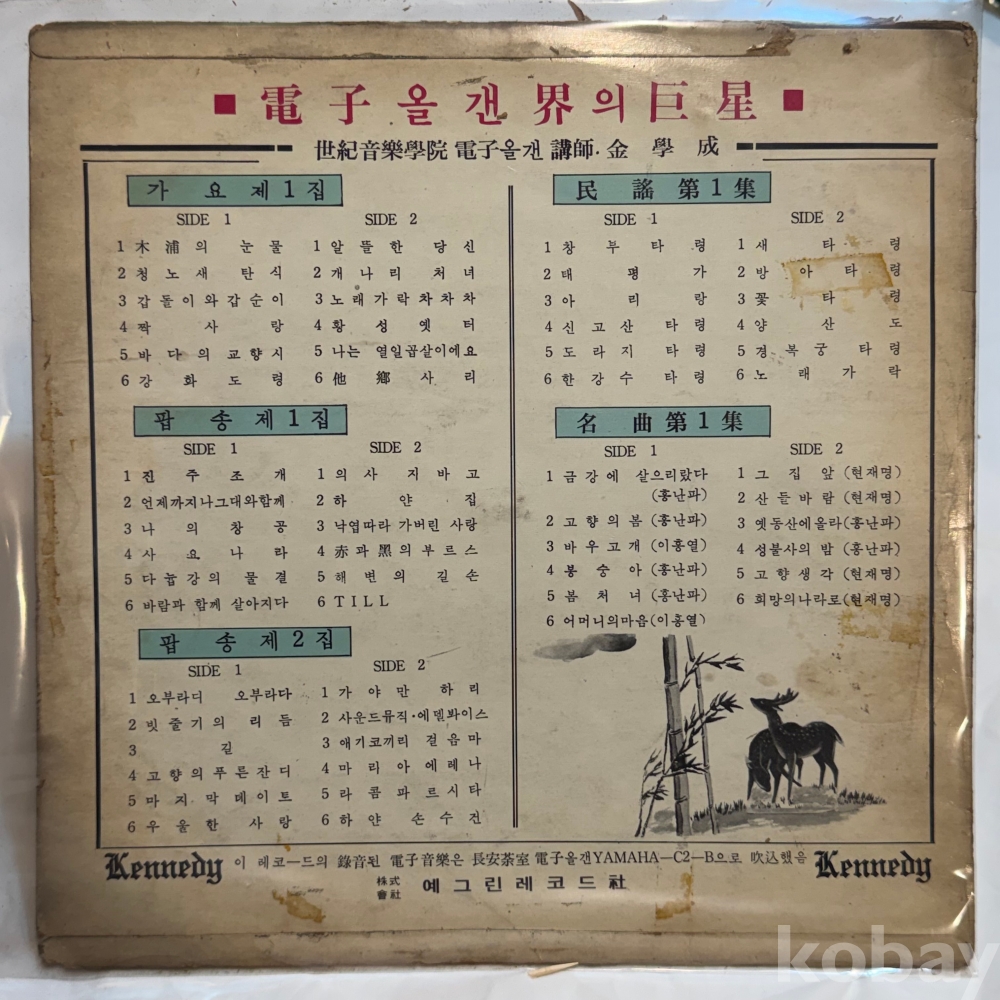 ■ 電子 올갠 界의 巨星 ■
世紀音樂學院 電子올갠 講師. 金學成
가요제1집
SIDE 1
1 木浦의 눈물
2 청노새 탄식
3 갑돌이와갑순이
4 짝사랑
5 바다의교향시
6 강화도령
SIDE 2
1 알뜰한 당신
2 개나리 처녀
3 노래가락차차차
4 황성옛터
5 나는 열일곱살이에요
6 他鄕사리
팝송제1집
SIDE 1
1 진주조개
2 언제까지나그대와함께
3 나의창공
4 사요나라
5 다뉴강의 물결
6 바람과 함께 살아지다
SIDE 2
1 의사 지바고
2 하얀집
3 낙엽따라 가버린 사랑
4 赤과 黑의부르스
5 해변의 길손
6 TILL
팝송제2집
SIDE 1
1 오부라디 오부라다
2 빗줄기의 리듬
3 길
4 고향의푸른잔디
5 마지막데이트
6 우울한 사랑
SIDE 2
1 가야만 하리
2 사운드뮤직·에델봐이스
3 애기코끼리 걸음마
4 마리아에레나
5 라콤파르시타
6 하얀 손수건
民謠第1集
SIDE 1
1 창부타령
2 태평가
3 아리랑
4 신고산 타령
5 도라지 타령
6 한강수 타령
SIDE 2
1 새타령
2 방아타령
3 꽃타령
4 양산도
5 경복궁 타령
6 노래가락
名曲第1集
SIDE 1
1 금강에 살으리랐다
(홍난파)
2 고향의봄 (홍난파)
3 바우고개 (이흥열)
4 봉숭아 (홍난파)
5 봄처녀 (홍난파)
6 어머니의마음(이흥열)
SIDE 2
1 그집앞 (현재명)
2 산들바람 (현재명)
3 옛동산에올라(홍난파)
4 성불사의 밤 (홍난파)
5 고향생각 (현재명)
6 희망의나라로(현재명)
Kennedy 이 레코—드의 錄音된 電子音樂은 長安茶室 電子올갠YAMAHA—C2—B으로 吹込했음 Kennedy
株式會社 예그린레코드社
kobay